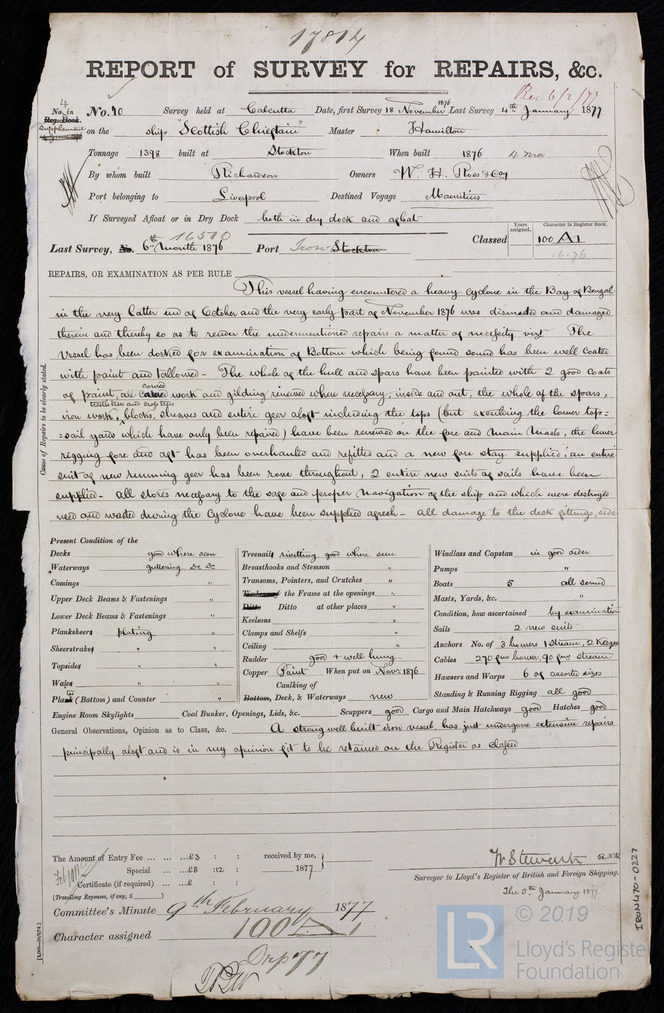 17814
REPORT of SURVEY for REPAIRS, &c.
Rec 6/2/77
4
No. in Reg. Book. No. 40 Survey held at Calcutta Date, first Survey 18 November 1876 Last Survey 4th January 1877
Supplement
on the ship "Scottish Chieftain" Master Hamilton
Tonnage 1398 built at Stockton When built 1876 4 mo
By whom built Richardson Owners W. H. Ross & Coy
Port belonging to Liverpool Destined Voyage Mauritius
If Surveyed Afloat or in Dry Dock both in dry dock and afloat
Years assigned. Character in Register Book.
16500
Last Survey, No. 6th month 1876 Port Iron Stockton Classed 100 A1
6.76
REPAIRS, OR EXAMINATION AS PER RULE
This vessel having encountered a heavy cyclone in the Bay of Bengal
in the very latter end of October and the very early part of November 1876 was dismasted and damaged
therein and thereby so as to render the undermentioned repairs a matter of necessity vizt The
vessel has been docked for examination of Bottom which being found sound has been well coated
with paint and tallowed - The whole of the hull and spars have been painted with 2 good coats
of paint, all carved work and gilding renewed when necessary, inside and out, the whole of the spars,
trestletrees and crosstrees
iron work, blocks, sheaves and entire gear aloft including the tops (but excepting the lower top=
=sail yards which have only been repaired) have been renewed on the fore and main masts, the lower
rigging fore and aft has been overhauled and refitted and a new fore stay supplied, an entire
suit of new running gear has been rove throughout, 2 entire new suits of sails have been
supplied - all stores necessary to the safe and proper navigation of the ship and which were destroyed
used and wasted during the cyclone have been supplied afresh - all damage to the deck fittings, side
Cause of Repairs to be clearly stated.
Present Condition of the
Decks good where seen
Waterways guttering Do Do
Comings "
Upper Deck Beams & Fastenings "
Lower Deck Beams & Fastenings "
Planksheers plating "
Sheerstrakes "
Topsides "
Wales "
Plank (Bottom) and Counter "
Treenail rivetting good where seen
Breasthooks and Stemson "
Transoms, Pointers, and Crutches "
Timbers of the Frame at the openings "
Ditto Ditto at other places "
Keelsons "
Clamps and Shelfs "
Ceiling "
Rudder good & well hung
Copper Paint When put on Novr 1876
Caulking of
Bottom, Deck, & Waterways new
Windlass and Capstan in good order
Pumps "
Boats 5 all sound
Masts, Yards, &c. "
Condition, how ascertained by examination
Sails 2 new suits
Anchors No. of 3 bowers 1 stream, 2 Kedges
Cables 270 fms bower, 90 fms stream
Hawsers and Warps 6 of assorted sizes
Standing & Running Rigging all good
Engine Room Skylights Coal Bunker, Openings, Lids, &c. Scuppers good Cargo and Main Hatchways good Hatches good
General Observations, Opinion as to Class, &c. A strong well built iron vessel, has just undergone extensive repairs
principally aloft and is in my opinion fit to be retained on the Register as classed
The Amount of Entry Fee £3 : : received by me,
Special £8 : 12 : 1877
Certificate (if required) £ :
(Travelling Expenses, if any, £ )
W Stewart
Surveyor to Lloyd's Register of British and Foreign Shipping.
The 5th January 1877
Committee's Minute 9th February 1877
Character assigned 100 A 1
IRON470-0227
© 2019
LR
Lloyd's Register
Foundation